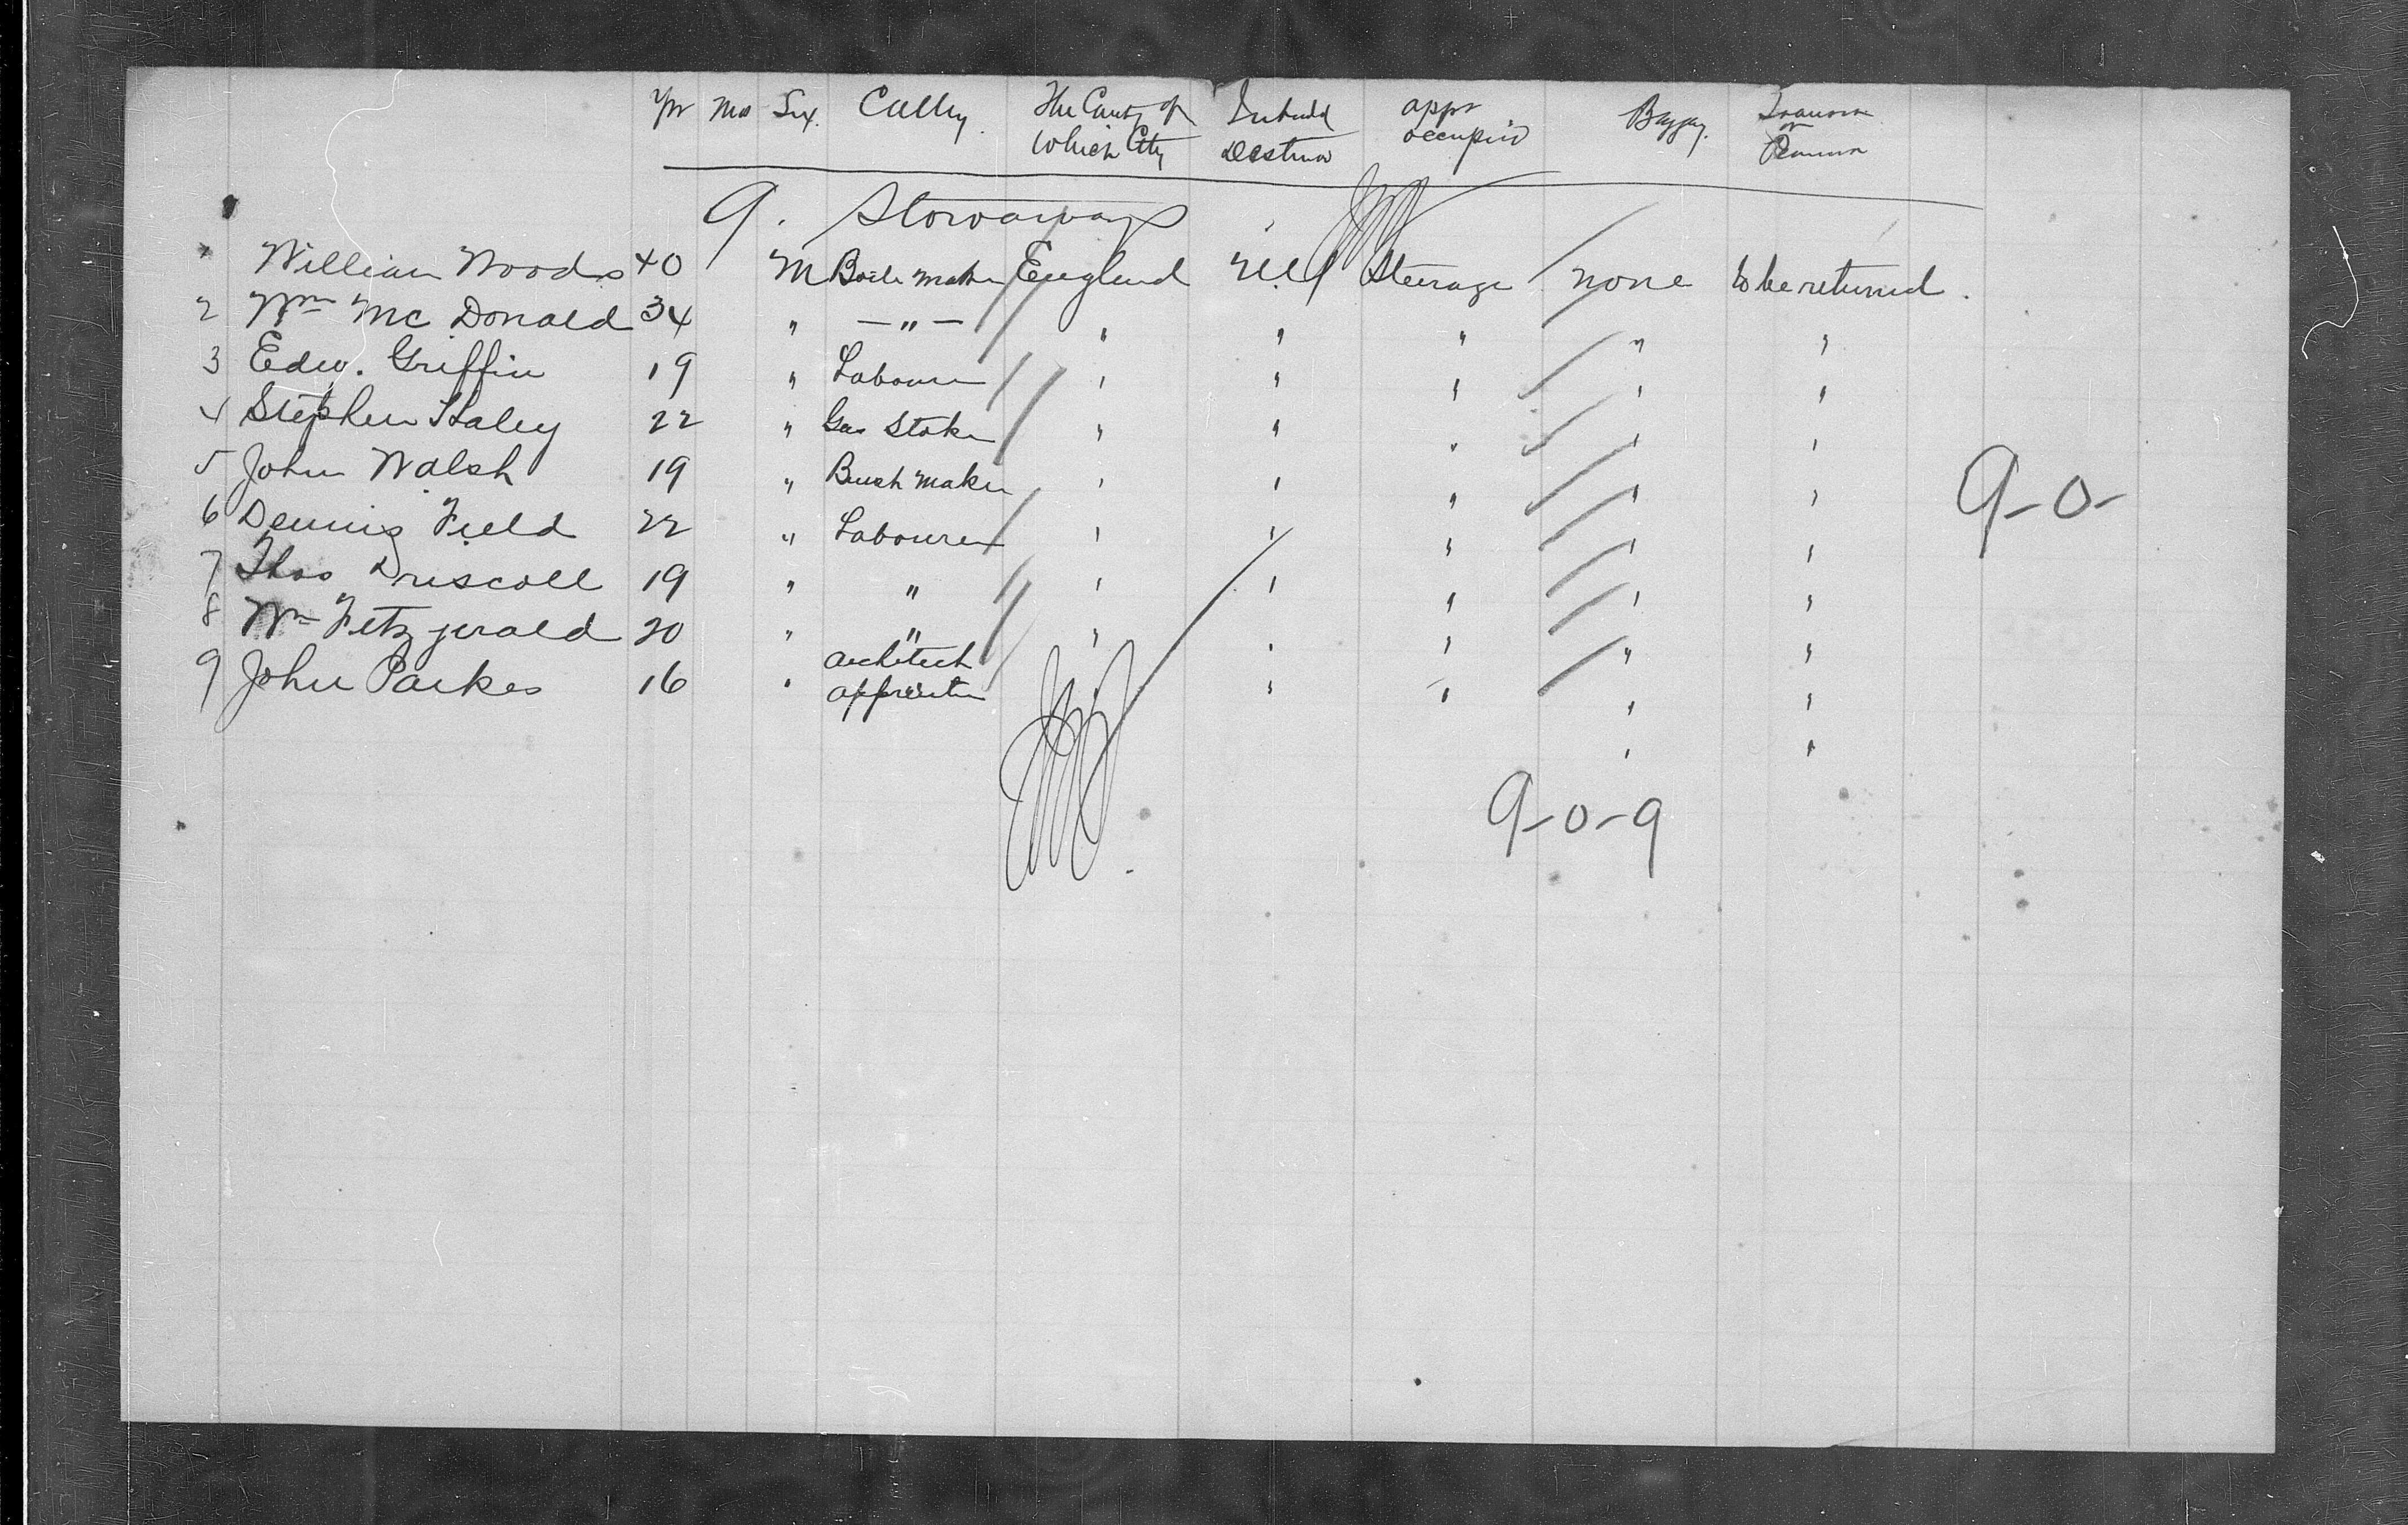 Yr Mo Sex. Callg. The County of which City Intendd Destina appr occupied Baggag. Transien or Perman
9. Stowaways
William Woods 40 M Boiler Maker England Steerage none to be returned.
2 Wm Mc Donald 34 " — " — " " " " "
3 Edw. Griffin 19 " Labourer " " " " "
4 Stephen Haley 22 " Gas Stoker " " " " "
5 John Walsh 19 " Brush Maker " " " " "
6 Dennis Field 22 " Labourer " " " " "
7 Thos Driscoll 19 " " " " " " "
8 Wm Fitzgerald 20 " " " " " " "
9 John Parkes 16 " architect apprentice " " " " "
" "
9-0-
9-0-9